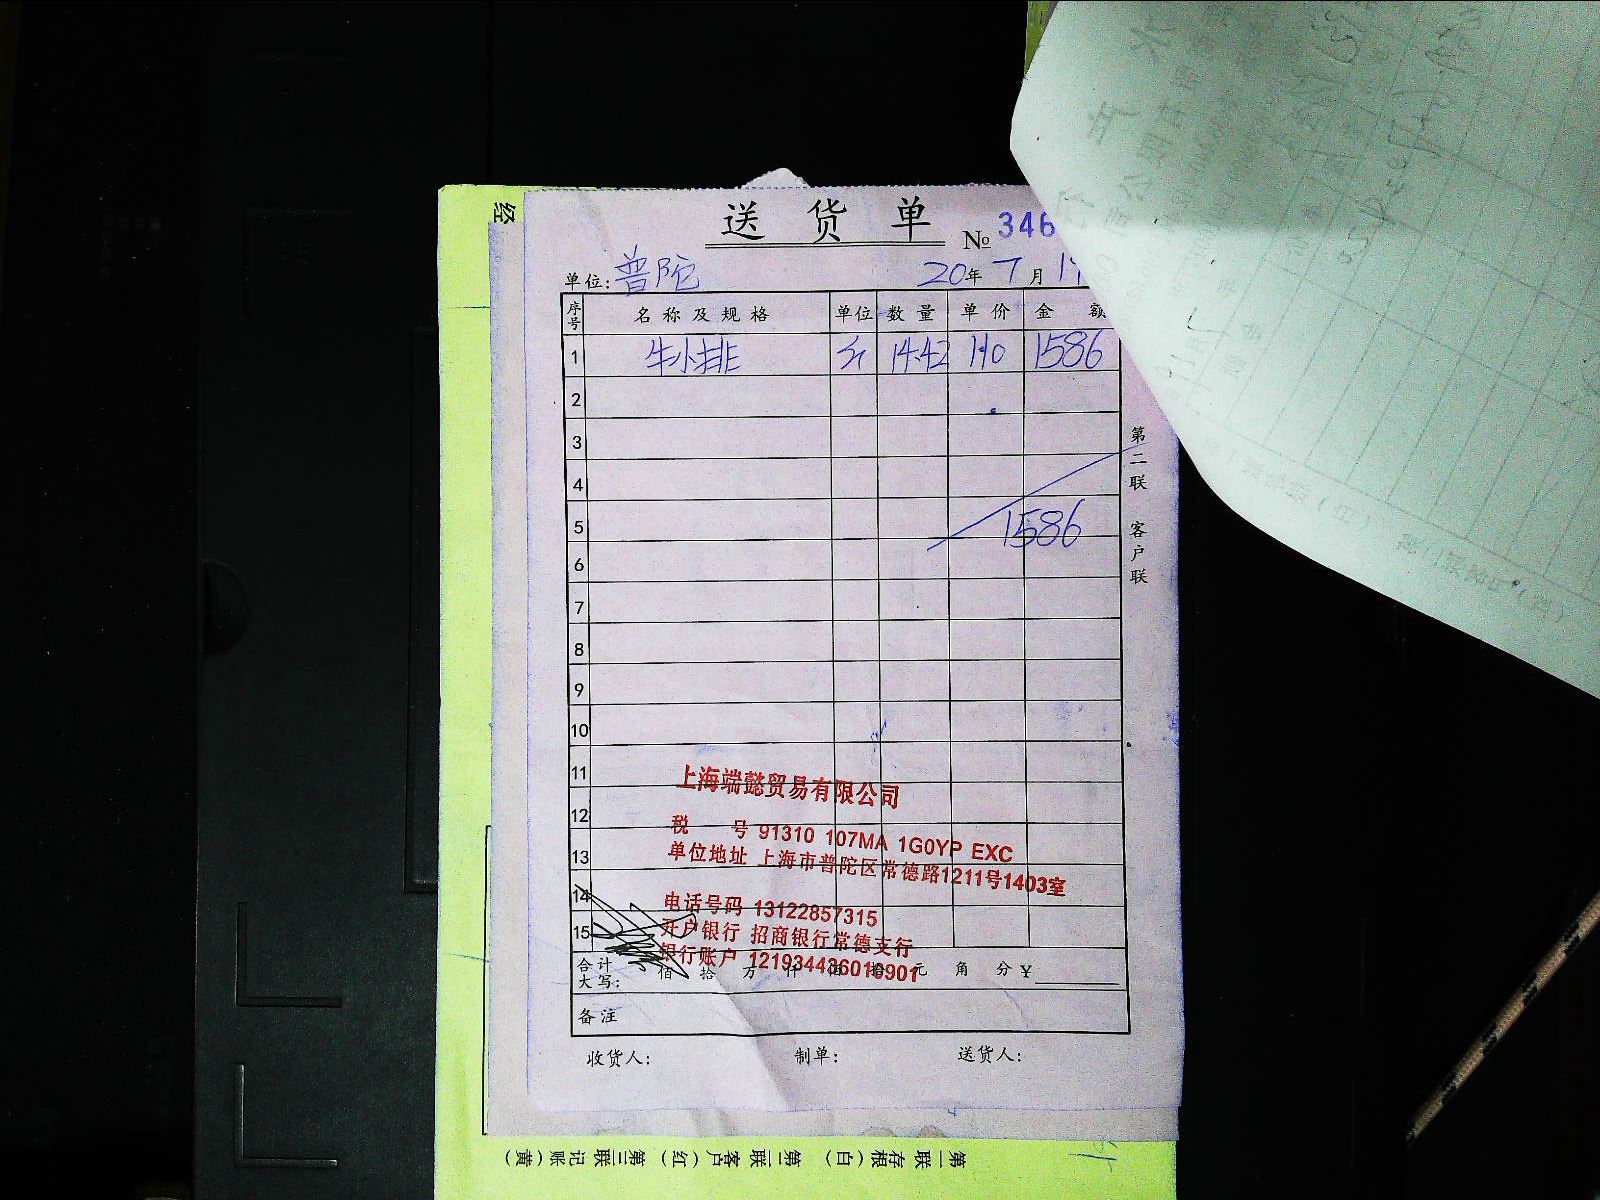 经
送货单
№ 346
单位: 普陀 20年 7月 1
序号 名称及规格 单位 数量 单价 金额
1 牛小排 斤 14.42 110 1586
2
3
4
5 1586
6
7
8
9
10
11
12
13
14
15
上海端懿贸易有限公司
税 号 91310 107MA 1G0YP EXC
单位地址 上海市普陀区常德路1211号1403室
电话号码 13122857315
开户银行 招商银行常德支行
银行账户 121934436010901
合计大写: 佰 拾 万 仟 佰 拾 元 角 分 ¥
备注
收货人: 制单: 送货人:
第二联 客户联
第一联存根(白) 第二联客户(红) 第三联记账(黄)